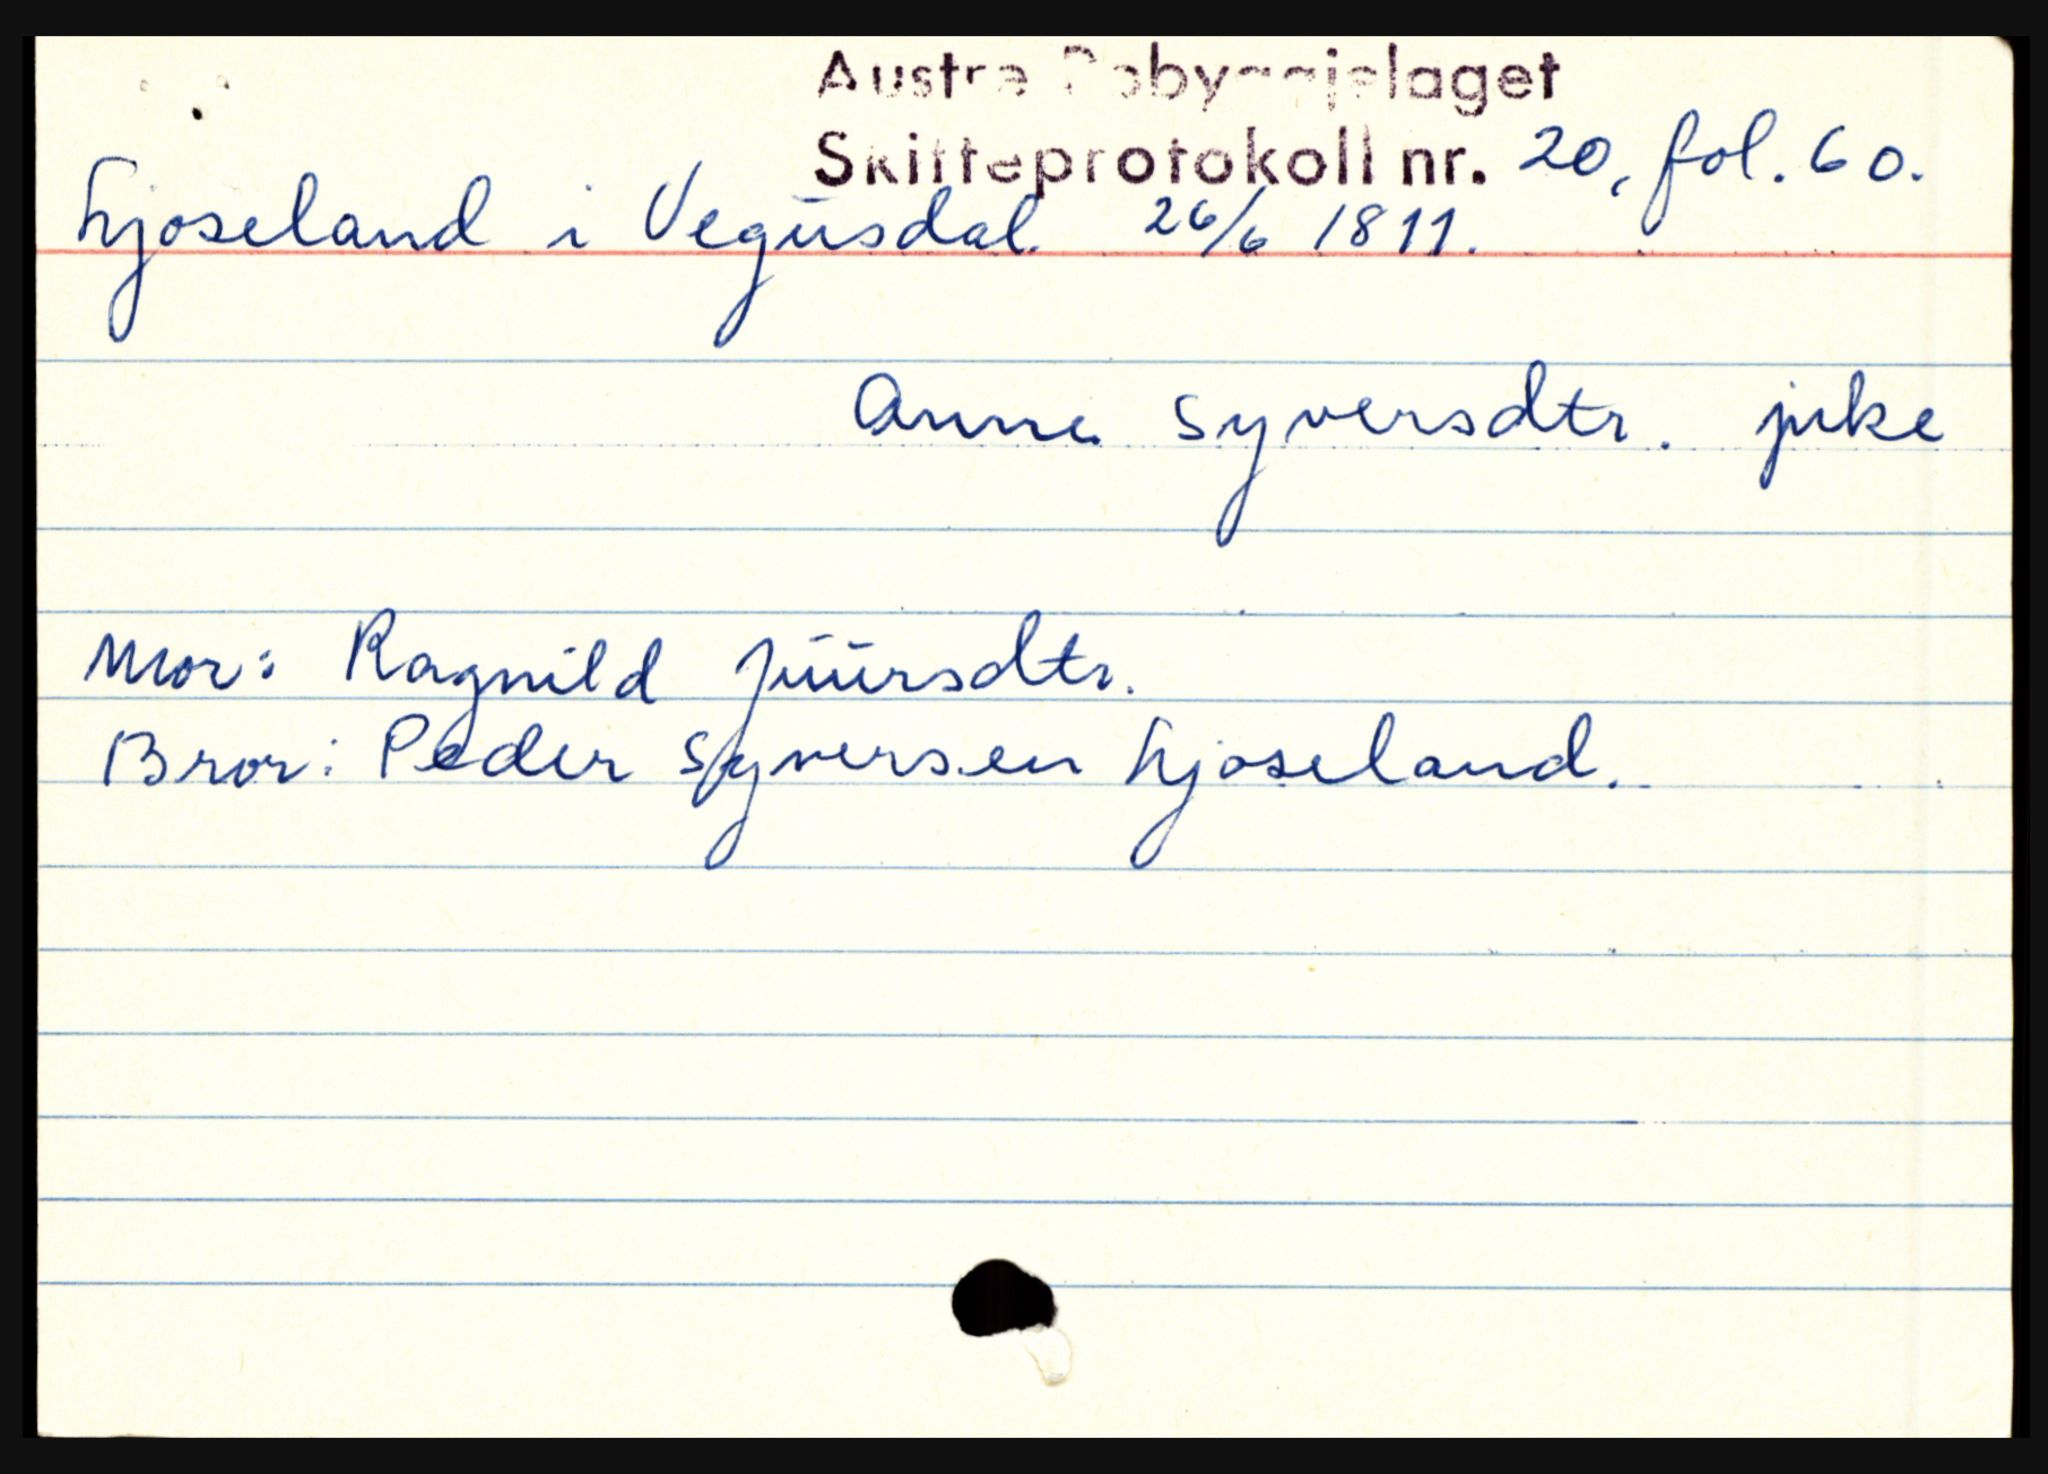 Austre Robyggjelaget
Skifteprotokoll nr. 20, fol. 60.
Ljoseland i Vegusdal. 26/6 1811.
Anne Syversdtr. pike
Mor: Ragnild Juursdtr.
Bror: Peder Syversen Ljoseland.